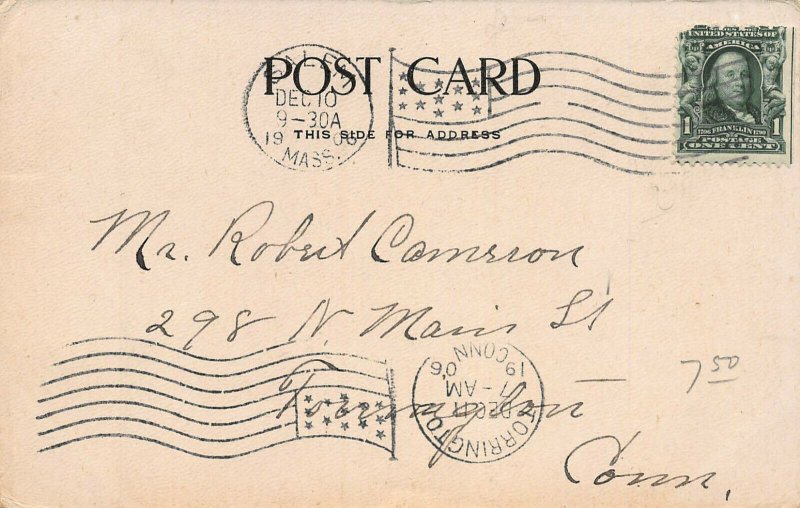 POST CARD
THIS SIDE FOR ADDRESS
DEC 10
9-30A
1906
MASS.
UNITED STATES OF
AMERICA
1 1706 FRANKLIN 1790 1
POSTAGE
ONE CENT
Mr. Robert Cameron
298 N. Main St
Torrington
Conn.
7 50
TORRINGTO
CONN
1906
-AM
DEC